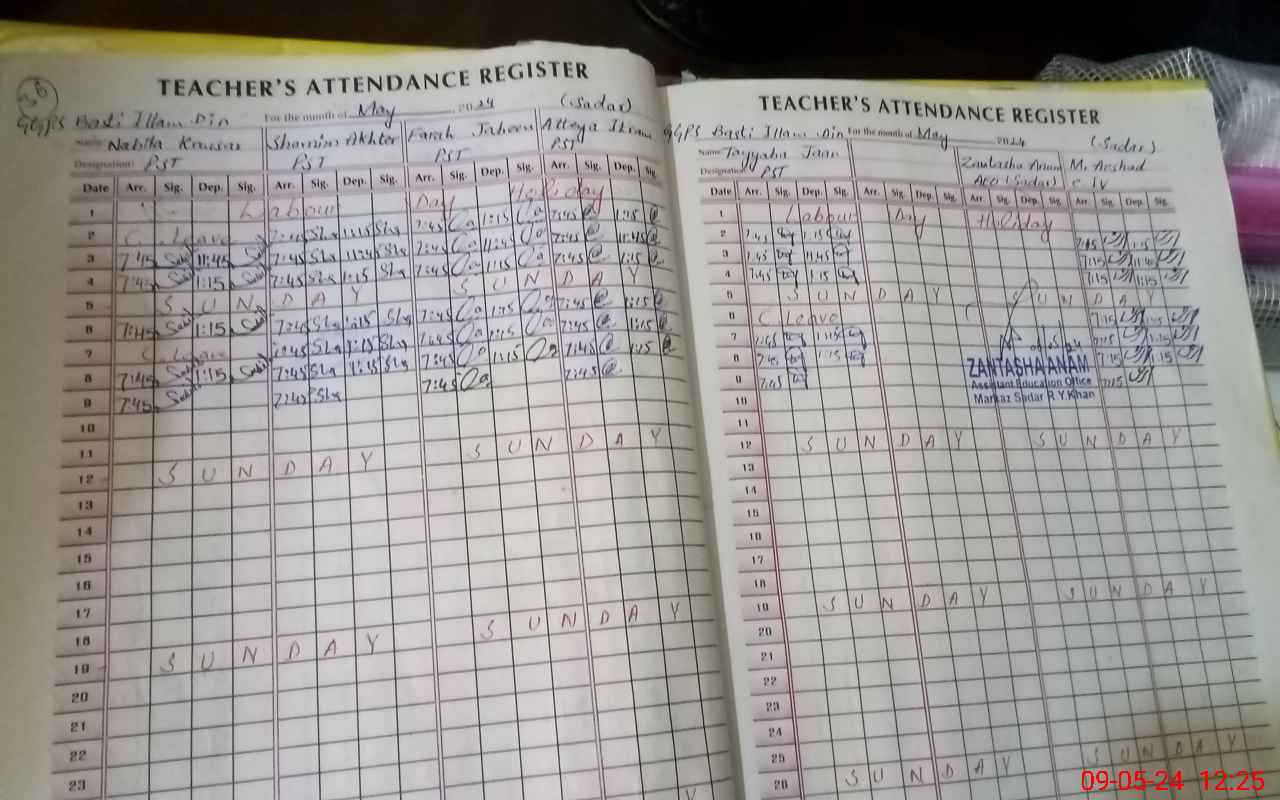 36
TEACHER'S ATTENDANCE REGISTER
GGPS Basti Illam Din For the month of May 2024 (Sadar)
Name Nabila Kausar Shamim Akhter Farah Jabeen Atteya Ikram
Designation PST PST PST PST
Date Arr. Sig. Dep. Sig. Arr. Sig. Dep. Sig. Arr. Sig. Dep. Sig. Arr. Sig. Dep. Sig.
1 Labour Day Holiday
2 C. Leave 7:45 Sha 1:15 Sha 7:45 1:15 7:45 1:15
3 7:45 11:45 7:45 Sha 11:45 Sha 7:45 11:45 7:45 11:45
4 7:45 1:15 7:45 Sha 1:15 Sha 7:45 1:15 7:45 1:15
5 S U N D A Y S U N D A Y
6 7:45 1:15 7:45 Sha 1:15 Sha 7:45 1:15 7:45 1:15
7 C. Leave 7:45 Sha 1:15 Sha 7:45 1:15 7:45 1:15
8 7:45 1:15 7:45 Sha 1:15 Sha 7:45 1:15 7:45 1:15
9 7:45 7:45 Sha 7:45 7:45
10
11
12 S U N D A Y S U N D A Y
13
14
15
16
17
18
19 S U N D A Y S U N D A Y
20
21
22
23
Y
TEACHER'S ATTENDANCE REGISTER
GGPS Basti Illam Din For the month of May 2024 (Sadar)
Name Tayyaba Jaan Zantasha Anam M. Arshad
Designation PST AEO (Sadar) C. IV
Date Arr. Sig. Dep. Sig. Arr. Sig. Dep. Sig. Arr. Sig. Dep. Sig. Arr. Sig. Dep. Sig.
1 Labour Day Holiday
2 7:45 1:15 7:15 1:15
3 7:45 11:45 7:15
4 7:45 1:15 7:15 1:15
5 S U N D A Y S U N D A Y
6 C. Leave 7:15
7 7:45 1:15 7:15
8 7:45 1:15 7:15 1:15
9 7:45 7:15
ZANTASHA ANAM
Assistant Education Office
Markaz Sadar R.Y.Khan
10
11
12 S U N D A Y S U N D A Y
13
14
15
16
17
18
19 S U N D A Y S U N D A Y
20
21
22
23
24
25
26 S U N D A Y S U N D A Y
09-05-24 12.25